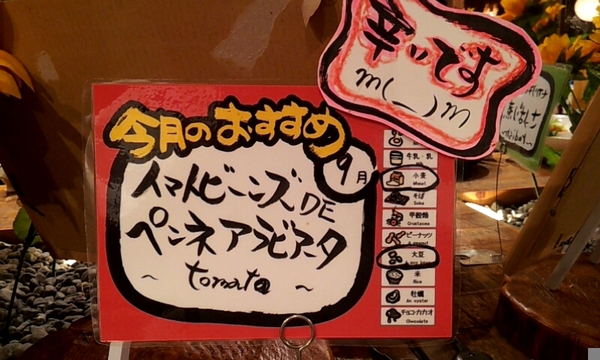 辛いです
m(__)m
今月のおすすめ
9月
イマトビーンズDE
ペンネアラビアータ
~ tomato ~
牛乳・乳
小麦
Wheat
そば
Soba
甲殻類
Crustacea
ピーナッツ
大豆
米
Rice
牡蠣
An oyster
チョコ・カカオ
Chocolate